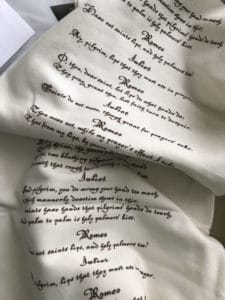 hand do touch
to palm is holy palmers' kiss.
Romeo
Have not saints lips, and holy palmers too?
Juliet
Ay, pilgrim, lips that they must use in prayer.
Romeo
O then dear saint, let lips do what hands do:
They pray, grant thou, lest faith turn to despair.
Juliet
Saints do not move, though grant for prayers' sake.
Romeo
Then move not while my prayer's effect I take.
Thus from my lips, by
Juliet
Good pilgrim, you do wrong your hand too much
mannerly devotion shows in this,
saints have hands that pilgrims' hands do touch
And palm to palm is holy palmers' kiss.
Romeo
not saints lips, and holy palmers too?
Juliet
pilgrim, lips that they must use in prayer.
Romeo